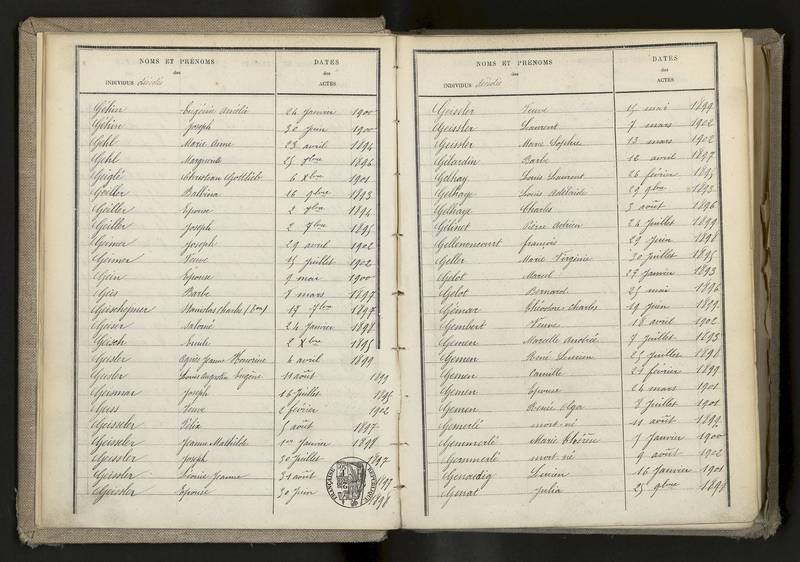 NOMS ET PRÉNOMS
des
INDIVIDUS décédés
DATES
des
ACTES
Géhin Eugénie Amélie 24 Janvier 1900
Géhin Joseph 30 Juin 1900
Gehl Marie Anne 23 avril 1894
Gehl Marguerite 25 7bre 1896
Geiglé Christian Gottlieb 6 Xbre 1901
Geiller Balbina 16 9bre 1893
Geiller Epouse 2 7bre 1894
Geiller Joseph 2 7bre 1895
Geimer Joseph 29 avril 1902
Geimer Veuve 15 Juillet 1902
Epouse 9 mai 1900
Geis Barbe 8 mars 1897
Stanislas Charles 17 7bre 1897
Salomé 24 Janvier 1898
2 Xbre 1895
Geisler Agnès Jeanne Honorine 4 avril 1899
Geisler Louis Augustin Eugène 11 août 1899
Joseph 16 Juillet
Geiss Veuve 2 février 1902
Geissler Félix 5 août 1897
Geissler Jeanne Mathilde 1er Janvier 1898
Geissler Joseph 30 Juillet 1897
Geissler Léonie Jeanne 31 août 1899
Geissler Epouse 30 Juin 1898
NOMS ET PRÉNOMS
des
INDIVIDUS décédés
DATES
des
ACTES
Geissler Veuve 15 mai 1899
Geissler Laurent 7 mars 1902
Geissler Marie Sophie 13 mars 1902
Gélardin Barbe 12 avril 1897
Gelhay Louis Laurent 26 février
Gelhaye Louis Adélaïde 29 9bre 1893
Gelhaye Charles 3 août 1896
Gelinet Pierre Adrien 24 Juillet 1899
Gellenoncourt françois 29 Juin 1898
Geller Marie Virginie 30 Juillet 1895
Gelot Marcel 27 Janvier 1893
Gelot Bernard 25 mai 1896
Gémar Théodore Charles 19 Juin 1899
Gembert Veuve 18 avril 1902
Gemen Marcelle Andrée 7 Juillet 1893
Gemen René Lucien 25 Juillet 1898
Gemen Camille 23 février 1899
Gemen Epouse 24 mars 1901
Gemen Renée Olga 8 Juillet 1901
Gemerlé mort-né 11 août 1899
Gemmerlé Marie Thérèse 7 Janvier 1900
Gemmerlé mort né 9 août 1902
Genaedig Lucien 16 Janvier 1901
Genat Julia 25 9bre 1898